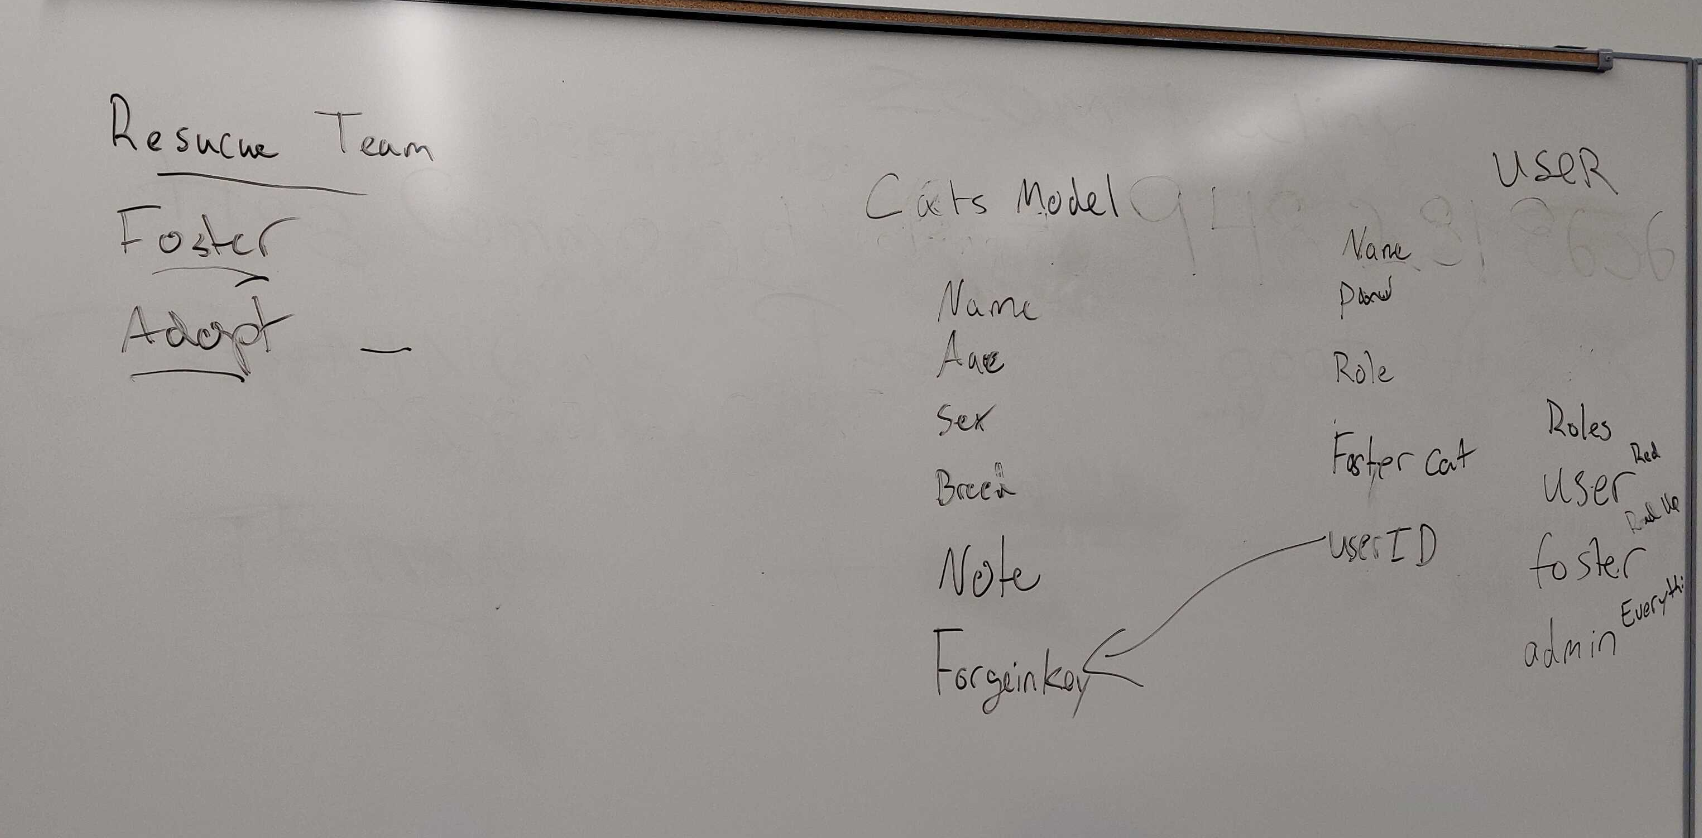 Resucue Team
Foster
Adopt –
Cats Model
Name
Age
Sex
Breed
Note
Forgeinkey
USER
Name
Role
Foster Cat
userID
Roles
user Red
foster
admin Everythi